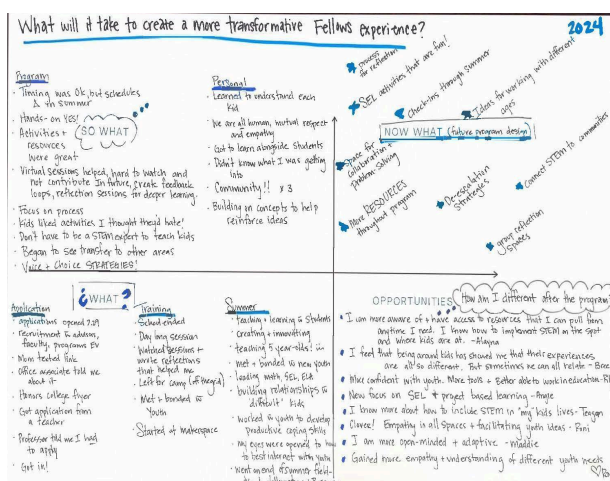 What will it take to create a more transformative Fellows experience?
2024
Program
• Timing was OK, but schedules
in summer
• Hands-on YES!
• Activities +
resources
were great
SO WHAT
• Virtual sessions helped, hard to watch and
not contribute. In future, create feedback
loops, reflection sessions for deeper learning.
• Focus on process
• Kids liked activities I thought they'd hate!
• Don't have to be a STEM expert to teach kids
• Began to see transfer to other areas
• Voice + Choice STRATEGIES!
Personal
• Learned to understand each
kid
• We are all human, mutual respect
and empathy
• Got to learn alongside students
• Didn't know what I was getting
into
• Community!! x 3
• Building on concepts to help
reinforce ideas
process
for reflection
SEL activities that are fun!
Check-ins through summer
Ideas for working with different
ages
NOW WHAT (future program design)
Space for
collaboration +
problem-solving
More RESOURCES
throughout program
De-escalation
strategies
Connect STEM to communities
group reflection
spaces
¿WHAT?
Application
• applications opened 7.29
• recruitment in advisory,
faculty, programs EV
• Mom texted link
• Office associate told me
about it
• Honors college flyer
• Got application from
a teacher
• Professor told me I had
to apply
• Got in!
Training
• Sched ended
• Day long session
• Watched sessions +
wrote reflections
that helped me
• Left for camp (off the grid)
• Met + bonded w
youth
• Started @ makespace
Summer
• teaching + learning w students
• creating + innovating
• teaching 5 year-olds!
• met + bonded w new youth
• leading math, SEL, ELA
• building relationships w
"difficult" kids
• worked w youth to develop
productive coping skills
• my eyes were opened to how
to best interact with youth
• went on end of summer field-
OPPORTUNITIES
How am I different after the program
• I am more aware of + have access to resources that I can pull from
anytime I need. I know how to implement STEM on the spot
and where kids are at. -
• I feel that being around kids has showed me that their experiences
are all so different. But sometimes we can all relate -
• More confident with youth. More tools + Better able to work in education -
• New focus on SEL + project based learning - Angie
• I know more about how to include STEM in "my" kids lives - Teagan
• Empathy in all spaces + facilitating youth ideas -
• I am more open-minded + adaptive - Maddie
• Gained more empathy + understanding of different youth needs